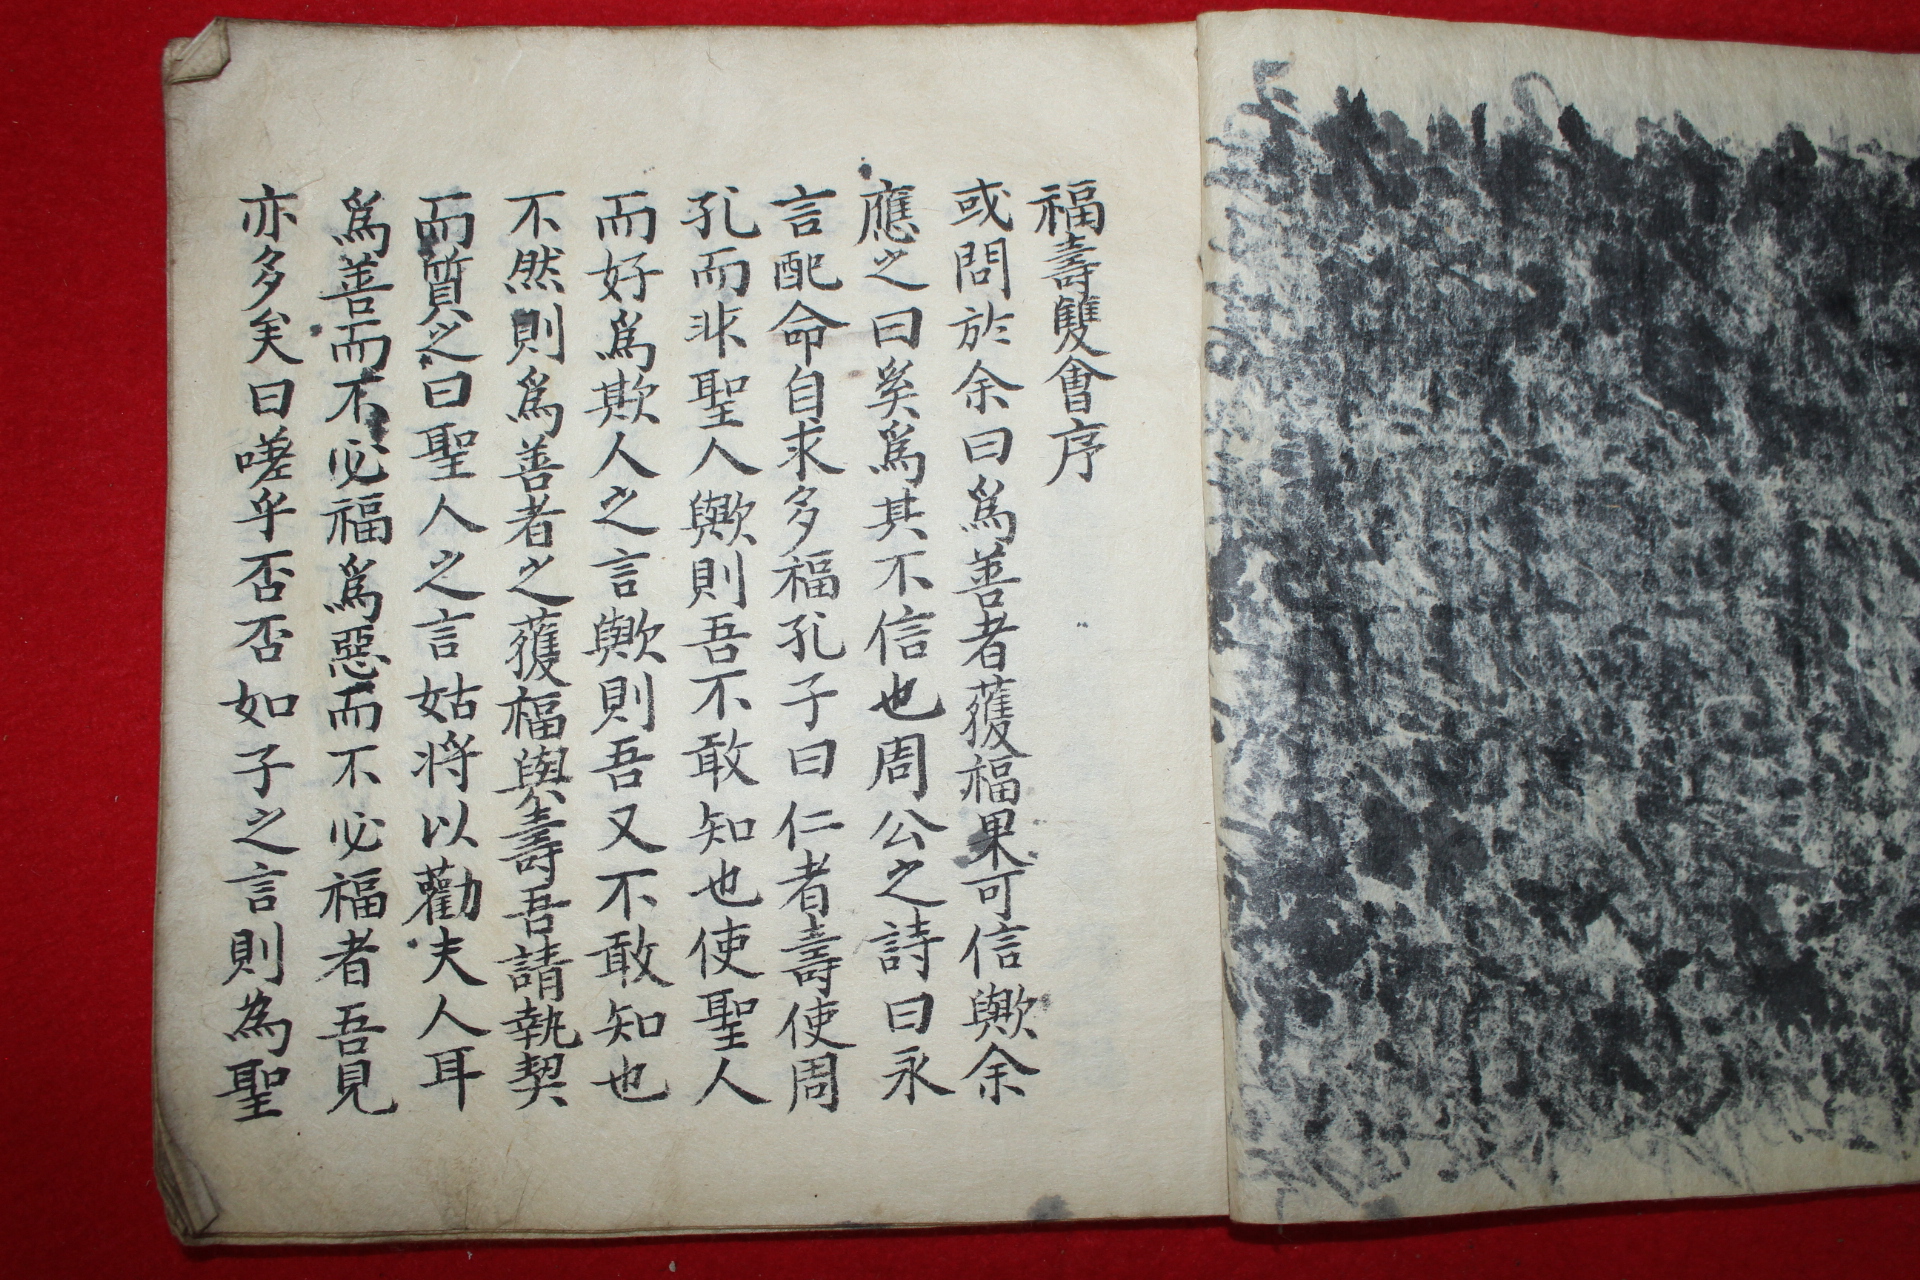 福壽雙會序
或問於余曰爲善者獲福果可信歟余
應之曰奚爲其不信也周公之詩曰永
言配命自求多福孔子曰仁者壽使周
孔而非聖人歟則吾不敢知也使聖人
而好爲欺人之言歟則吾又不敢知也
不然則爲善者之獲福與壽吾請執契
而質之曰聖人之言姑將以勸夫人耳
爲善而不必福爲惡而不必福者吾見
亦多矣曰嗟乎否否如子之言則為聖